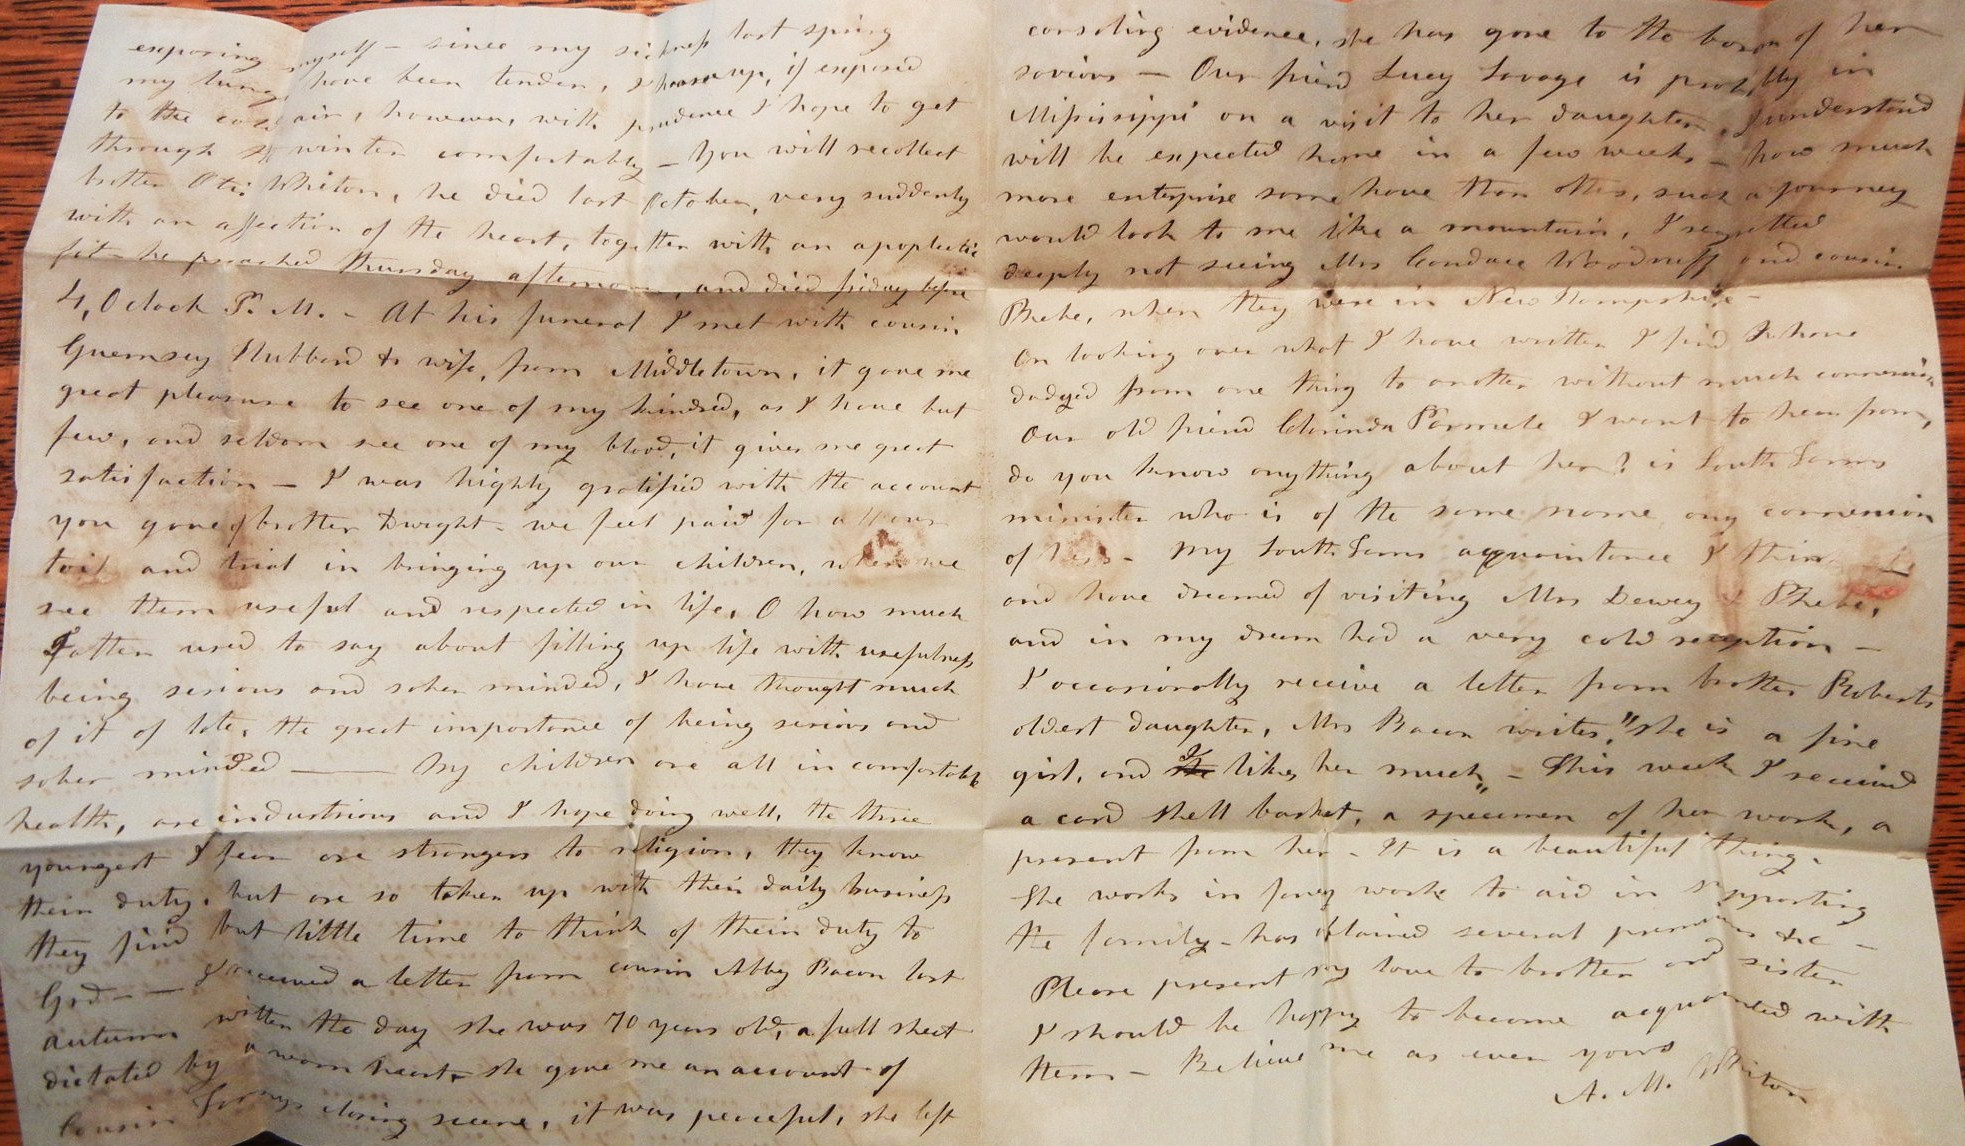 exposing myself - since my sickness last spring
my lungs have been tender, & hoarse up, if exposed
to the cold air, however, with prudence I hope to get
through winter comfortably - You will recollect
brother Otis Whiton, he died last October, very suddenly
with an affection of the heart, together with an apoplectic
fit - he preached thursday afternoon, and died friday before
4, O clock P. M. - At his funeral I met with cousin
Guernsey Hubbard & wife, from Middletown, it gave me
great pleasure to see one of my kindred, as I have but
few, and seldom see one of my blood, it gives me great
satisfaction - I was highly gratified with the account
you gave of brother Dwight - we feel paid for all our
toil and trial in bringing up our children, when we
see them useful and respected in life, O how much
Father used to say about filling up life with usefulness
being serious and sober minded, I have thought much
of it of late, the great importance of being serious and
sober minded —— My children are all in comfortable
health, are industrious and I hope doing well, the three
youngest I fear are strangers to religion, they know
their duty, but are so taken up with their daily business
they find but little time to think of their duty to
God - - I received a letter from cousin Abby Bacon last
autumn written the day she was 70 years old, a full sheet
dictated by a warm heart, she gave me an account of
Cousin closing scene, it was peaceful, she left
consoling evidence, she has gone to the bosom of her
saviour - Our friend Lucy Savage is probably in
Mississippi on a visit to her daughter, I understand
will be expected home in a few weeks - how much
more enterprise some have than others, such a journey
would look to me like a mountain, I regretted
deeply not seeing Mrs Candace Woodruff and cousin
Phebe, when they were in New Hampshire -
On looking over what I have written I find I have
dodged from one thing to another without much connexion
Our old friend Clorinda Parmele I want to hear from,
do you know anything about her? is South Farms
minister who is of the same name any connexion
of hers - My South Farms acquaintance I think
and have dreamed of visiting Mrs Dewey & Phebe,
and in my dream had a very cold reception -
I occasionally receive a letter from brother Roberts
oldest daughter, Mrs Bacon writes, "she is a fine
girl, and I likes her much" - This week I received
a card shell basket, a specimen of her work, a
present from her - It is a beautiful thing.
She works in fancy work to aid in supporting
the family - has obtained several premiums &c -
Please present my love to brother and sister
I should be happy to become acquainted with
them - Believe me as ever yours
A. M. Whiton